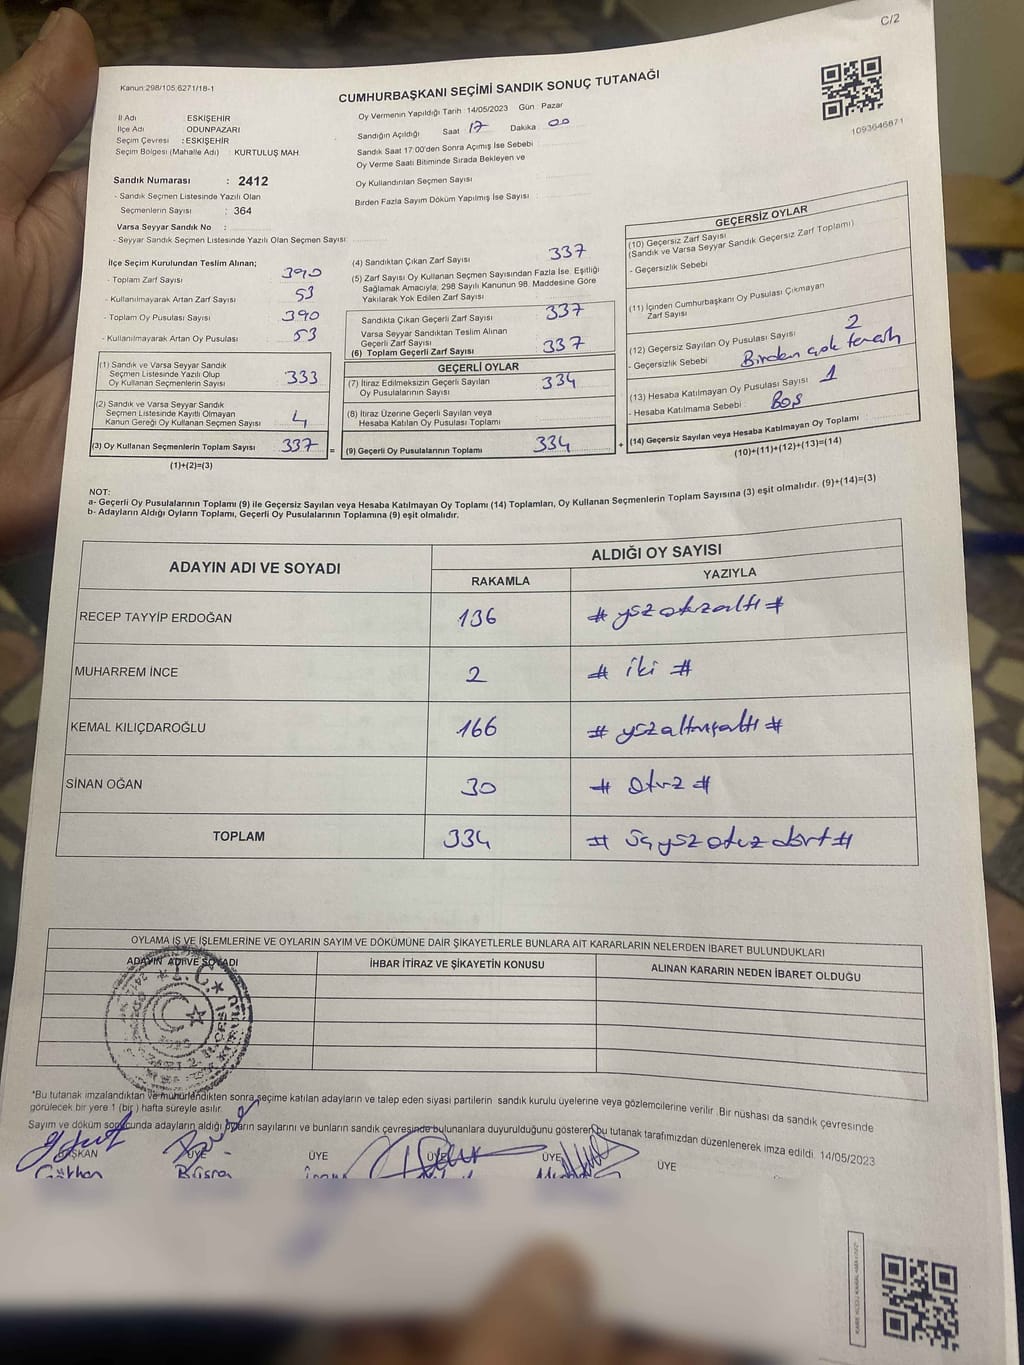 C/2
Kanun:298/105,6271/18-1
CUMHURBAŞKANI SEÇİMİ SANDIK SONUÇ TUTANAĞI
1093646871
İl Adı : ESKİŞEHİR
İlçe Adı : ODUNPAZARI
Seçim Çevresi : ESKİŞEHİR
Seçim Bölgesi (Mahalle Adı) : KURTULUŞ MAH.
Sandık Numarası : 2412
- Sandık Seçmen Listesinde Yazılı Olan
Seçmenlerin Sayısı : 364
Varsa Seyyar Sandık No :
- Seyyar Sandık Seçmen Listesinde Yazılı Olan Seçmen Sayısı:
Oy Vermenin Yapıldığı Tarih : 14/05/2023 Gün : Pazar
Sandığın Açıldığı Saat 17 Dakika 00
Sandık Saat 17:00'den Sonra Açımış İse Sebebi
Oy Verme Saati Bitiminde Sırada Bekleyen ve
Oy Kullandırılan Seçmen Sayısı
Birden Fazla Sayım Döküm Yapılmış İse Sayısı :
İlçe Seçim Kurulundan Teslim Alınan;
- Toplam Zarf Sayısı : 390
- Kullanılmayarak Artan Zarf Sayısı : 53
- Toplam Oy Pusulası Sayısı : 390
- Kullanılmayarak Artan Oy Pusulası : 53
(1) Sandık ve Varsa Seyyar Sandık
Seçmen Listesinde Yazılı Olup
Oy Kullanan Seçmenlerin Sayısı 333
(2) Sandık ve Varsa Seyyar Sandık
Seçmen Listesinde Kayıtlı Olmayan
Kanun Gereği Oy Kullanan Seçmen Sayısı 4
(3) Oy Kullanan Seçmenlerin Toplam Sayısı 337 =
(1)+(2)=(3)
(4) Sandıktan Çıkan Zarf Sayısı 337
(5) Zarf Sayısı Oy Kullanan Seçmen Sayısından Fazla İse, Eşitliği
Sağlamak Amacıyla, 298 Sayılı Kanunun 98. Maddesine Göre
Yakılarak Yok Edilen Zarf Sayısı
Sandıkta Çıkan Geçerli Zarf Sayısı 337
Varsa Seyyar Sandıktan Teslim Alınan
Geçerli Zarf Sayısı
(6) Toplam Geçerli Zarf Sayısı 337
GEÇERLİ OYLAR
(7) İtiraz Edilmeksizin Geçerli Sayılan
Oy Pusulalarının Sayısı 334
(8) İtiraz Üzerine Geçerli Sayılan veya
Hesaba Katılan Oy Pusulası Toplamı
(9) Geçerli Oy Pusulalarının Toplamı 334 +
GEÇERSİZ OYLAR
(10) Geçersiz Zarf Sayısı
(Sandık ve Varsa Seyyar Sandık Geçersiz Zarf Toplamı)
- Geçersizlik Sebebi
(11) İçinden Cumhurbaşkanı Oy Pusulası Çıkmayan
Zarf Sayısı
(12) Geçersiz Sayılan Oy Pusulası Sayısı 2
- Geçersizlik Sebebi Birden çok tercih
(13) Hesaba Katılmayan Oy Pusulası Sayısı 1
- Hesaba Katılmama Sebebi : Boş
(14) Geçersiz Sayılan veya Hesaba Katılmayan Oy Toplamı
(10)+(11)+(12)+(13)=(14)
NOT:
a- Geçerli Oy Pusulalarının Toplamı (9) ile Geçersiz Sayılan veya Hesaba Katılmayan Oy Toplamı (14) Toplamları, Oy Kullanan Seçmenlerin Toplam Sayısına (3) eşit olmalıdır. (9)+(14)=(3)
b- Adayların Aldığı Oyların Toplamı, Geçerli Oy Pusulalarının Toplamına (9) eşit olmalıdır.
ADAYIN ADI VE SOYADI ALDIĞI OY SAYISI
RAKAMLA YAZIYLA
RECEP TAYYİP ERDOĞAN 136 # yüzotuzaltı #
MUHARREM İNCE 2 # iki #
KEMAL KILIÇDAROĞLU 166 # yüzaltmışaltı #
SİNAN OĞAN 30 # Otuz #
TOPLAM 334 # üçyüzotuzdört #
OYLAMA İŞ VE İŞLEMLERİNE VE OYLARIN SAYIM VE DÖKÜMÜNE DAİR ŞİKAYETLERLE BUNLARA AİT KARARLARIN NELERDEN İBARET BULUNDUKLARI
ADAYIN ADI VE SOYADI İHBAR İTİRAZ VE ŞİKAYETİN KONUSU ALINAN KARARIN NEDEN İBARET OLDUĞU
T.C.
*Bu tutanak imzalandıktan ve mühürlendikten sonra seçime katılan adayların ve talep eden siyasi partilerin sandık kurulu üyelerine veya gözlemcilerine verilir. Bir nüshası da sandık çevresinde
görülecek bir yere 1 (bir) hafta süreyle asılır.
Sayım ve döküm sonucunda adayların aldığı oyların sayılarını ve bunların sandık çevresinde bulunanlara duyurulduğunu gösteren bu tutanak tarafımızdan düzenlenerek imza edildi. 14/05/2023
BAŞKAN ÜYE ÜYE ÜYE ÜYE ÜYE
Gökhan Büşra